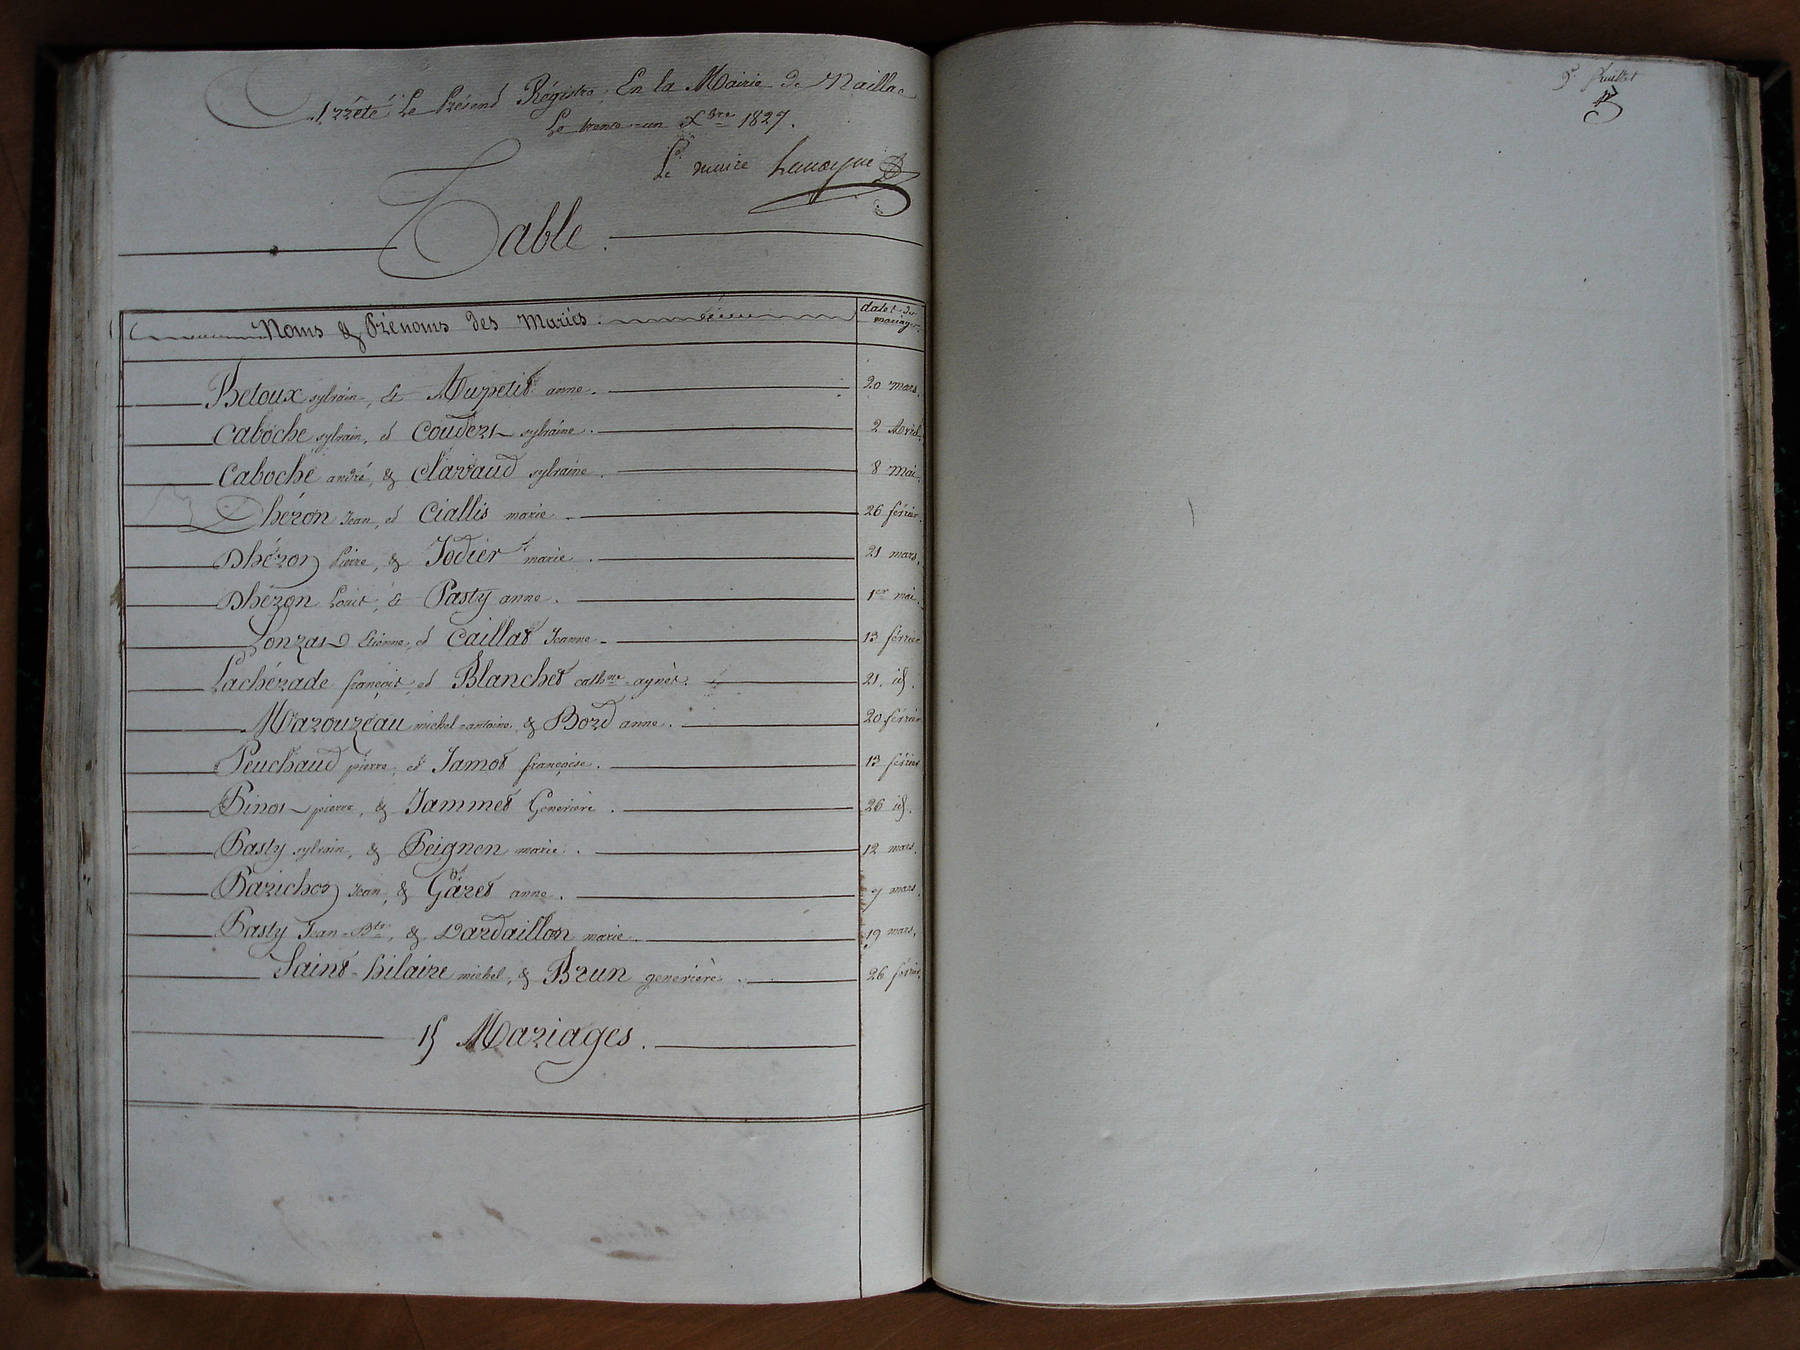 Arrêté Le Présent Régistre En la Mairie de Naillac
Le trente-un Xbre 1827.
Le maire
Table.
Noms & Prénoms des Mariés.
dates des mariages
Betoux sylvain, & Dupetit anne. 20 mars.
Caboche sylvain, et Coudert sylvaine. 2 Avril.
Caboche andré, & Clavaud sylvaine. 8 Mai.
Dhéron Jean, et Ciallis marie. 26 février.
Dhéron Pierre, & Jodier marie. 21 mars.
Dhéron Louis, & Pasty anne. 1er mai.
Jonzat Etienne, et Caillat Jeanne. 13 février
Lachérade françois, et Blanchet cathne agnès. 21. id.
Marouzeau michel-antoine, & Bord anne. 20 février
Peuchaud pierre, et Jamot françoise. 13 février
Pinot pierre, & Jammet Geneviève. 26 id.
Pasty sylvain, & Peignen marie. 12 mars.
Parichon Jean, & Garet anne. 7 mars.
Pasty Jean-Bte, & Dardaillon marie. 19 mars.
Saint-hilaire michel, & Brun geneviève. 26 février
15 Mariages.
9e feuillet